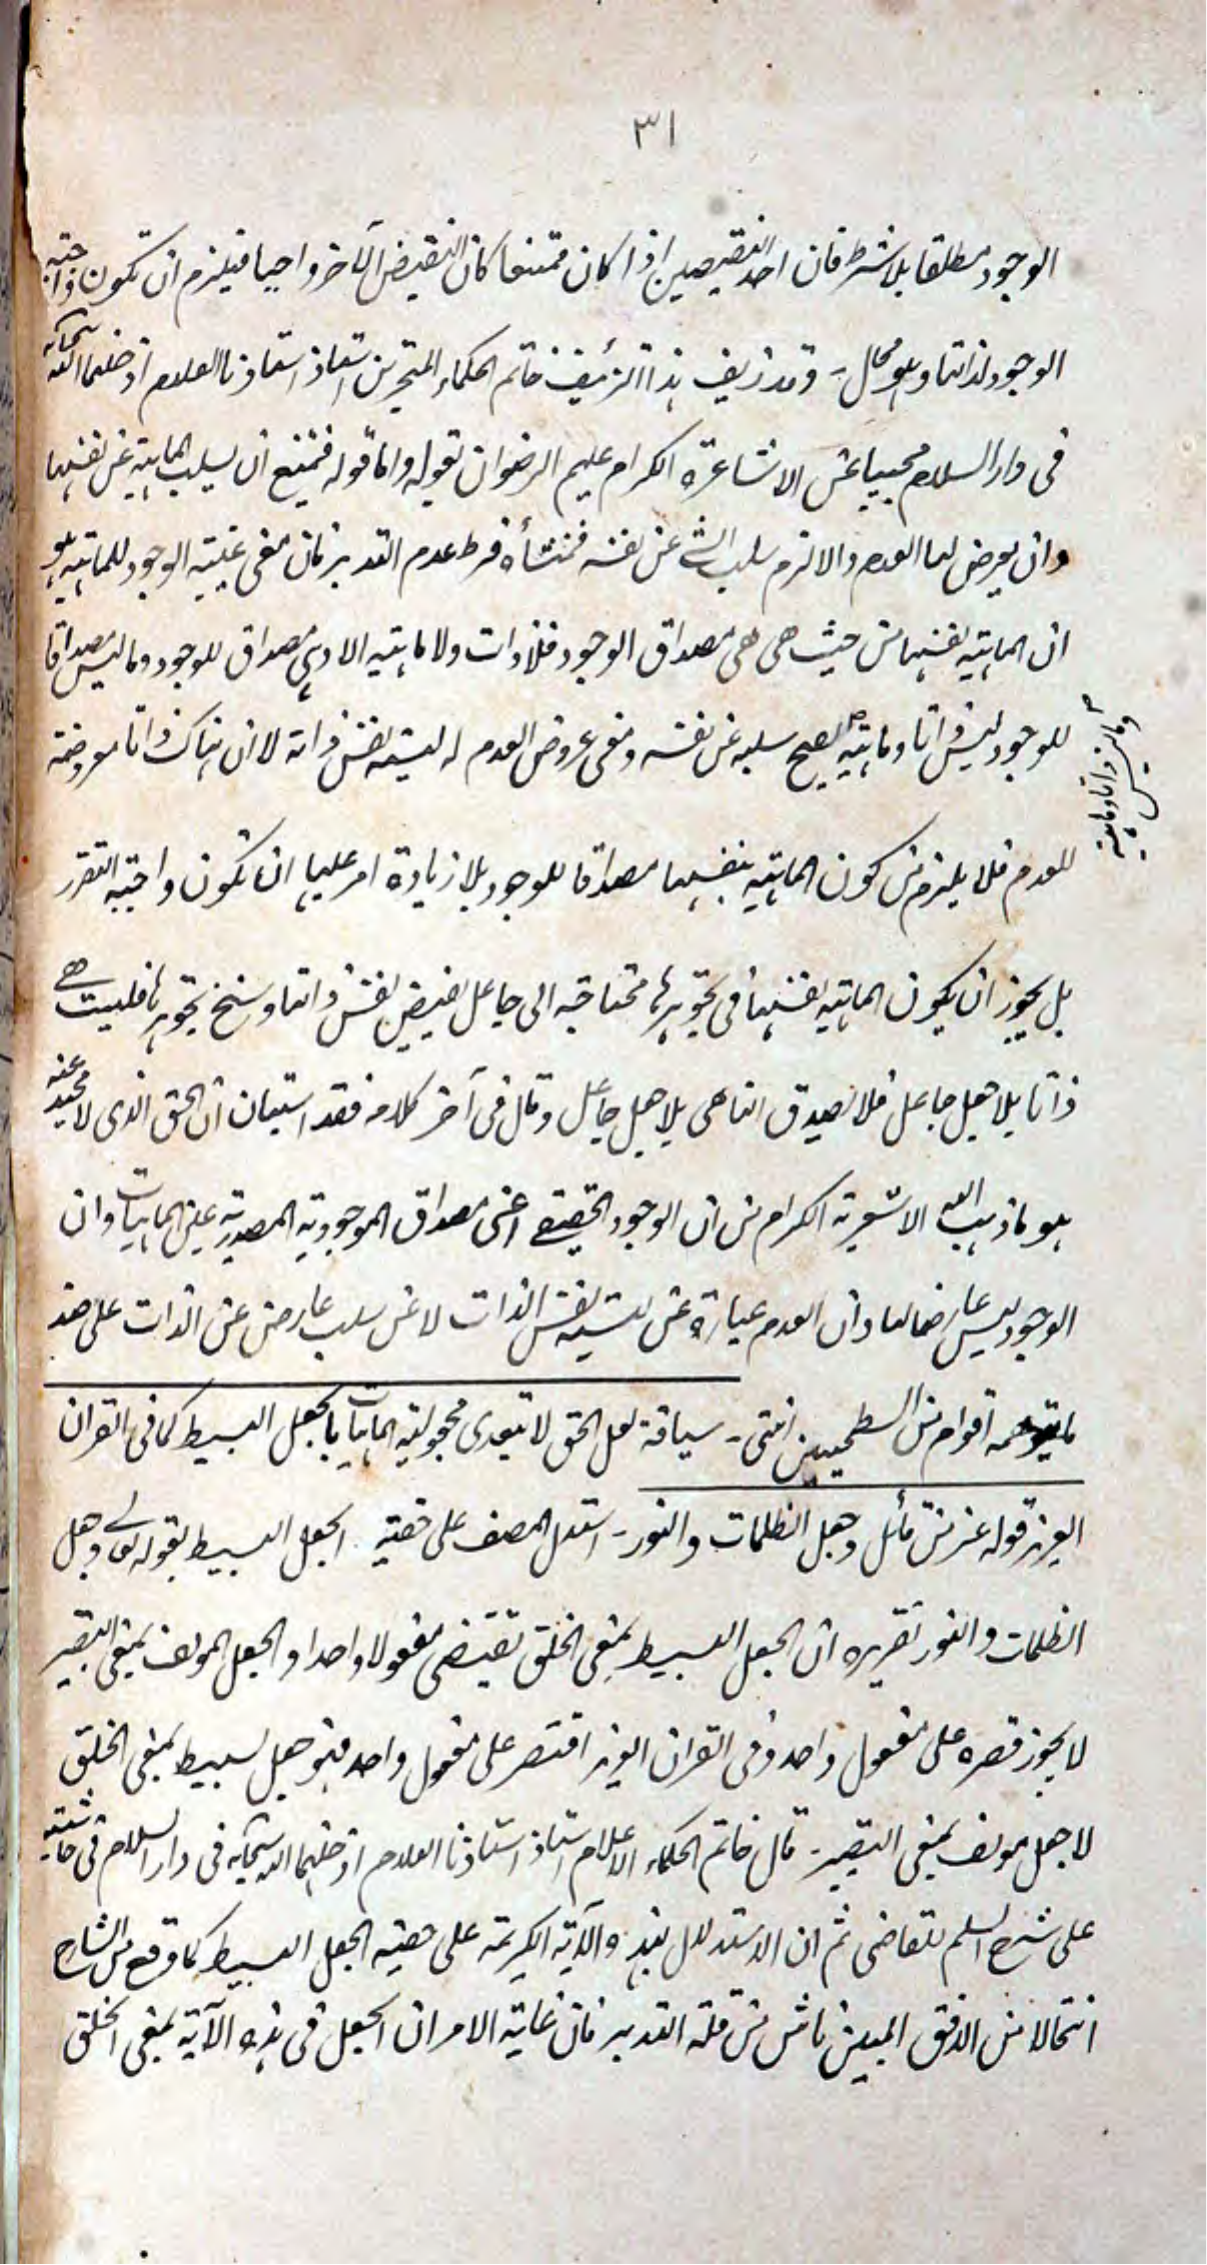 ٣١
الوجود مطلقا بلا شرط فان احد النقيضين اذا كان ممتنعا كان النقيض الآخر واجبا فيلزم ان تكون واجبة
الوجود لذاتها وهو محال - وقد زيف هذا التزئيف خاتم الحكماء المتبحرين استاذ استاذنا العلام ادخلهما الله سبحانه
فى دار السلام مجيبا عن الاشاعرة الكرام عليهم الرضوان بقوله واما قوله فيمتنع ان يسلب الماهية عن نفسها
وان يعرض لها العدم والا لزم سلب الشئ عن نفسه فمنشأه فرط عدم التدبر فان معنى عينية الوجود للماهية هو
ان الماهية بنفسها من حيث هى هى مصداق الوجود فلا ذات ولا ماهية الا وهى مصداق للوجود وما ليس مصداقا
للوجود ليس ذاتا وماهية يصح سلبه عن نفسه ومعنى عروض العدم له ليسية نفس ذاته لا ان هناك ذاتا معروضة
وما ليس ذاتا وماهية
للعدم فلا يلزم من كون الماهية بنفسها مصداقا للوجود بلا زيادة امر عليها ان تكون واجبة التقرر
بل يجوز ان يكون الماهية بنفسها فى تجوهرها محتاجة الى جاعل يفيض نفس ذاتها وسنخ تجوهرها فليست هى
ذاتا بلا جعل جاعل فلا يصدق انها هى بلا جعل جاعل وقال فى آخر كلامه فقد استبان ان الحق الذى لا محيد عنه
هو ما ذهب اليه الاشعرية الكرام من ان الوجود الحقيقى اعنى مصداق الموجودية المصدرية عين الماهيات وان
الوجود ليس عارضا لها وان العدم عبارة عن ليسية نفس الذات لا عن سلب عارض عن الذات على ضد
ما يتوهمه اقوام من السطحيين انتهى - سياقة لعل الحق لا تتعدى مجعولية الماهيات بالجعل البسيط كما فى القران
العزيز قوله عز من قائل وجعل الظلمات والنور - استدل المصنف على حقية الجعل البسيط بقوله تعالى وجعل
الظلمات والنور تقريره ان الجعل البسيط بمعنى الخلق يقتضى مفعولا واحدا والجعل المولف بمعنى التصيير
لا يجوز قصره على مفعول واحد وفى القران العزيز اقتصر على مفعول واحد فهو جعل بسيط بمعنى الخلق
لا جعل مولف بمعنى التصيير - قال خاتم الحكماء الاعلام استاذ استاذنا العلام ادخلهما الله سبحانه فى دار السلام فى حاشيته
على شرح السلم للقاضى ثم ان الاستدلال بهذه الآية الكريمة على حقية الجعل البسيط كما وقع من الشارح
انتحالا من الافق المبين ناش من قلة التدبر فان غاية الامر ان الجعل فى هذه الآية بمعنى الخلق